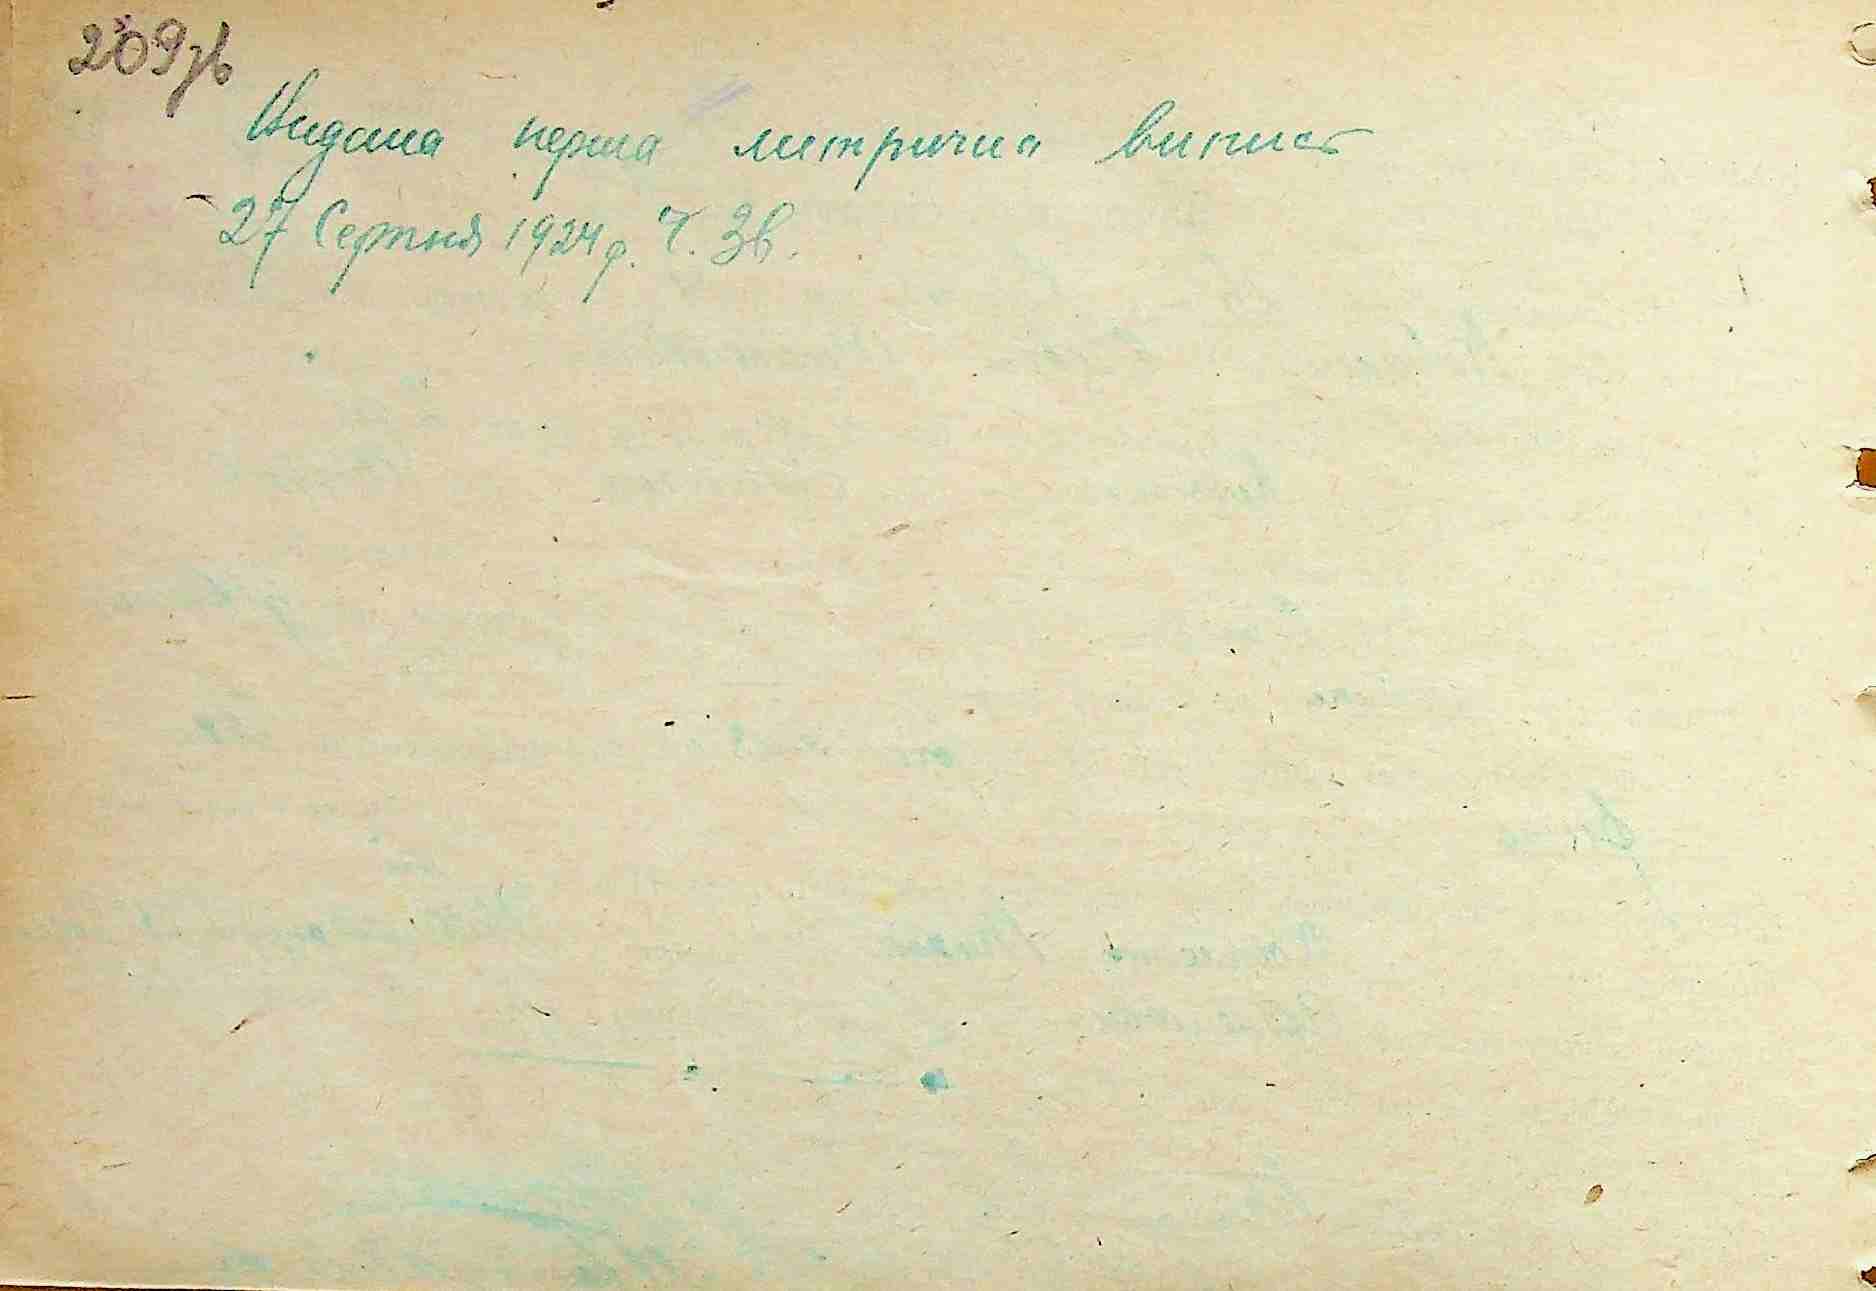 209зв
Видана перша метрична випись
27 Серпня 1924 р. Ч. 38.